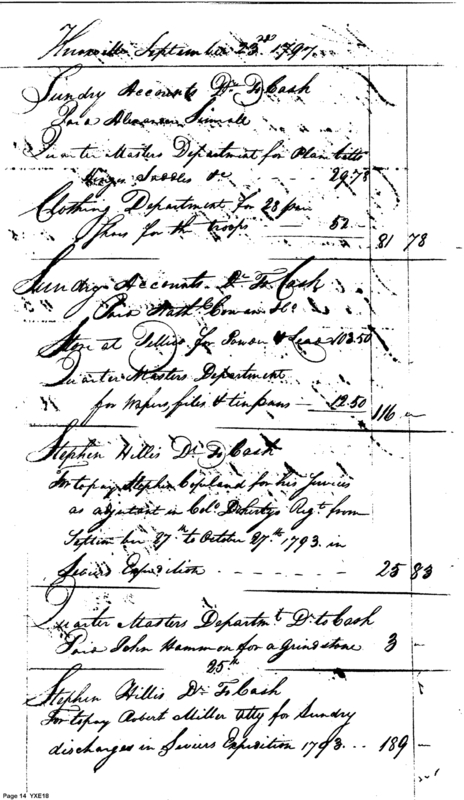 Knoxville September 23rd 1797.
Sundry Accounts Dr To Cash
Paid Alexander
Quarter Masters Department for Plan
Hinges Saddles &c 29.78
Clothing Department for 28 pair
Shoes for the troops — 52 —
81 78
Sundry Accounts Dr To Cash
Paid Nathl Cowan &Co
Store at Tellico for Powder & Lead 103.50
Quarter Masters Department
for Wafers, files & tinpans — 12.50
116 —
Stephen Hillis Dr To Cash
For to pay Stephen Copland for his Services
as adjutant in Colo Dohertys Regt from
September 27th to October 27th 1793. in
Seviers Expedition 25 83
Quarter Masters Departmt Dr to Cash
Paid John Hammon for a Grindstone 3 —
25th
Stephen Hillis Dr To Cash
For to pay Robert Miller Atty for Sundry
discharges in Seviers Expedition 1793... 189 —
Page 14 YXE18